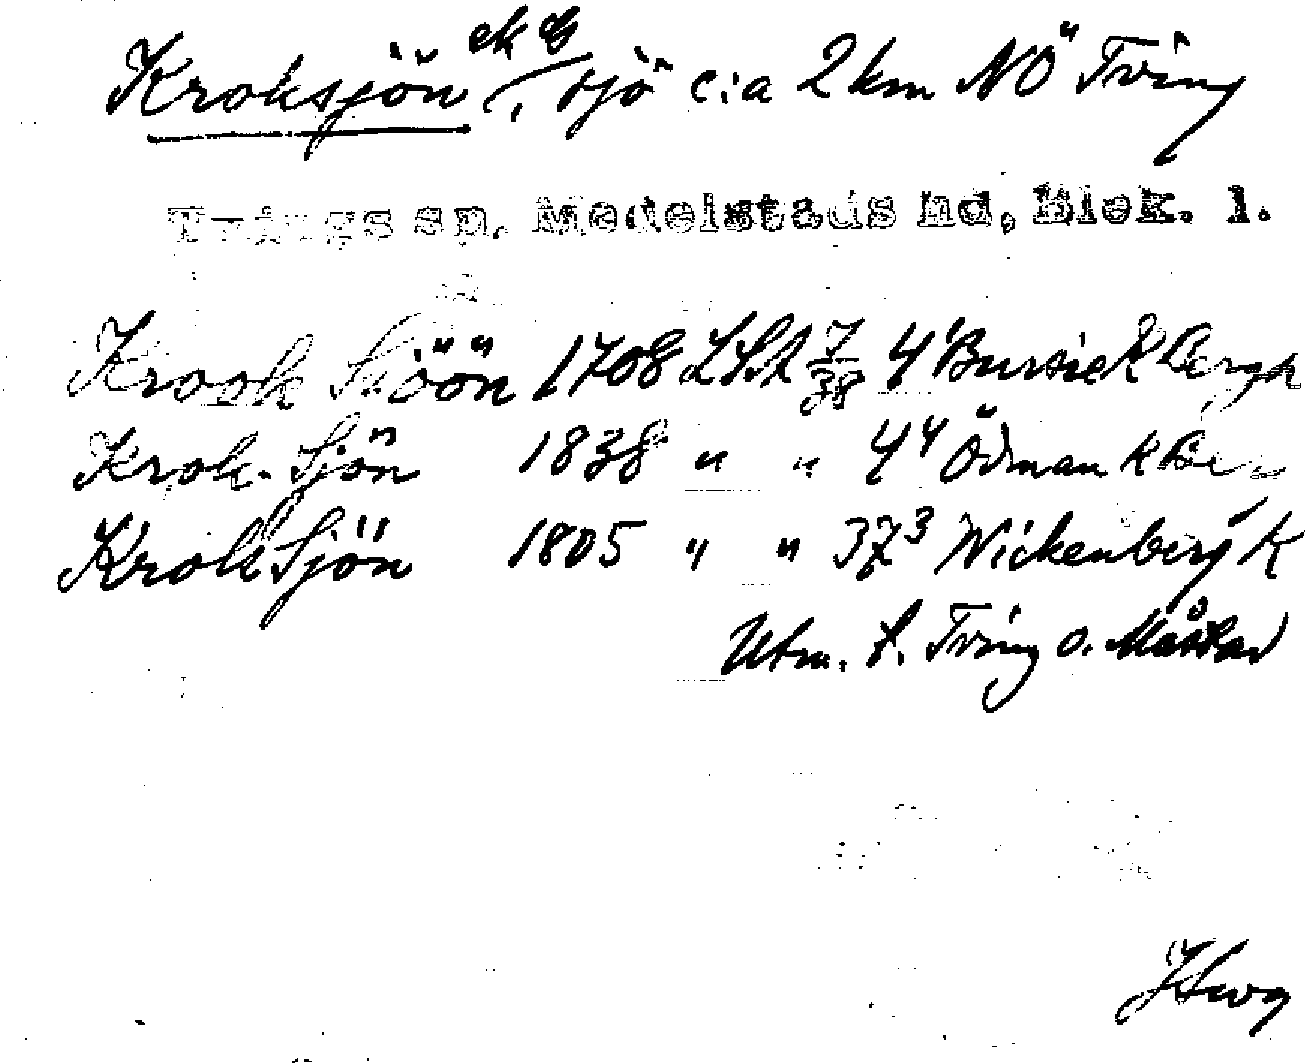 Kroksjön ek G, sjö c:a 2 km NÖ Tving
Tvings sn, Medelstads hd, Blek. l.
Krook Siöön 1708 LSA 7/38 4¹ Bursie K Bergh
Krok-Sjön 1838 " " 4⁴ Ödman K
Krok Sjön 1805 " " 37³ Wickenberg K
Utm. f. Tving o.